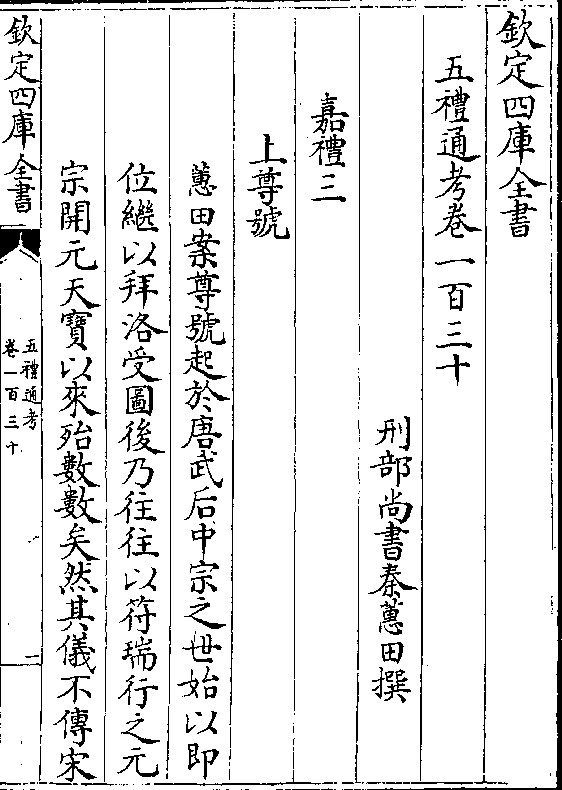 欽定四庫全書
五禮通考卷一百三十
刑部尚書秦蕙田撰
嘉禮三
上尊號
蕙田案尊號起於唐武后中宗之世始以即
位繼以拜洛受圖後乃往往以符瑞行之元
宗開元天寶以來殆數數矣然其儀不傳宋
欽定四庫全書
五禮通考
卷一百三十
一